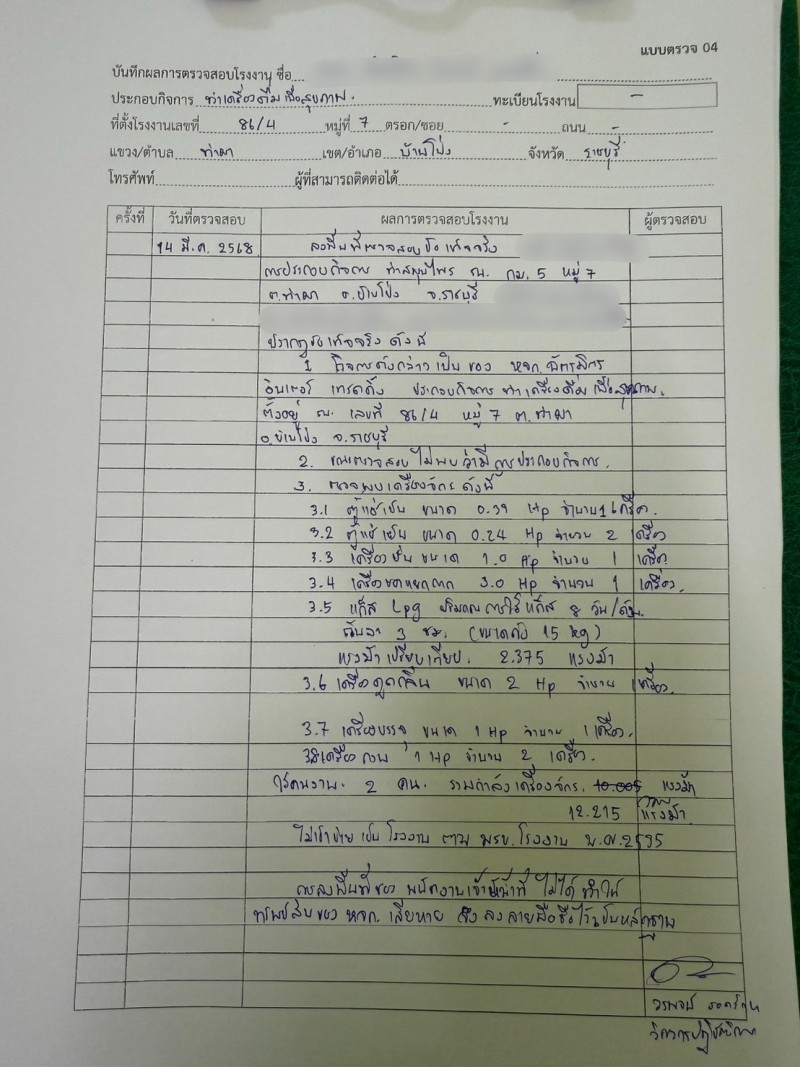 แบบตรวจ 04
บันทึกผลการตรวจสอบโรงงาน ชื่อ
ประกอบกิจการ ทำเครื่องดื่มเพื่อสุขภาพ. ทะเบียนโรงงาน -
ที่ตั้งโรงงานเลขที่ 86/4 หมู่ที่ 7 ตรอก/ซอย - ถนน -
แขวง/ตำบล ท่าผา เขต/อำเภอ บ้านโป่ง จังหวัด ราชบุรี
โทรศัพท์ ผู้ที่สามารถติดต่อได้
ครั้งที่ วันที่ตรวจสอบ ผลการตรวจสอบโรงงาน ผู้ตรวจสอบ
14 มี.ค. 2568 ลงพื้นที่ตรวจสอบข้อเท็จจริง
การประกอบกิจการ ทำสมุนไพร ณ. กม. 5 หมู่ 7
ต.ท่าผา อ.บ้านโป่ง จ.ราชบุรี
ปรากฏข้อเท็จจริง ดังนี้
1 กิจการดังกล่าวเป็นของ หจก. ฉัตรมิตร
อินเตอร์ เทรดดิ้ง ประกอบกิจการ ทำเครื่องดื่มเพื่อสุขภาพ.
ตั้งอยู่ ณ. เลขที่ 86/4 หมู่ 7 ต.ท่าผา
อ.บ้านโป่ง จ.ราชบุรี
2. ขณะตรวจสอบไม่พบว่ามีการประกอบกิจการ.
3. ตรวจพบเครื่องจักรดังนี้
3.1 ตู้แช่เย็น ขนาด 0.39 Hp จำนวน 1 เครื่อง.
3.2 ตู้แช่เย็น ขนาด 0.24 Hp จำนวน 2 เครื่อง
3.3 เครื่องปั่น ขนาด 1.0 Hp จำนวน 1 เครื่อง.
3.4 เครื่องบดหยาบ 3.0 Hp จำนวน 1 เครื่อง.
3.5 แก๊ส Lpg ปริมาณการใช้แก๊ส 8 วัน/ถัง.
วันละ 3 ชม. (ขนาดถัง 15 kg)
แรงม้าเปรียบเทียบ. 2.375 แรงม้า
3.6 เครื่องดูดกลิ่น ขนาด 2 Hp จำนวน 1 เครื่อง.
3.7 เครื่องบรรจุ ขนาด 1 Hp จำนวน 1 เครื่อง.
3.8 เครื่องกวน 1 Hp จำนวน 2 เครื่อง.
ใช้คนงาน. 2 คน. รวมกำลังเครื่องจักร. 10.005 แรงม้า
12.215 แรงม้า
ไม่เข้าข่ายเป็นโรงงาน ตาม พรบ.โรงงาน พ.ศ.2535
การลงพื้นที่ของ พนักงานเจ้าหน้าที่ ไม่ได้ทำให้
ทรัพย์สินของ หจก. เสียหาย จึงลงลายมือชื่อไว้เป็นหลักฐาน
วิศวกรปฏิบัติการ